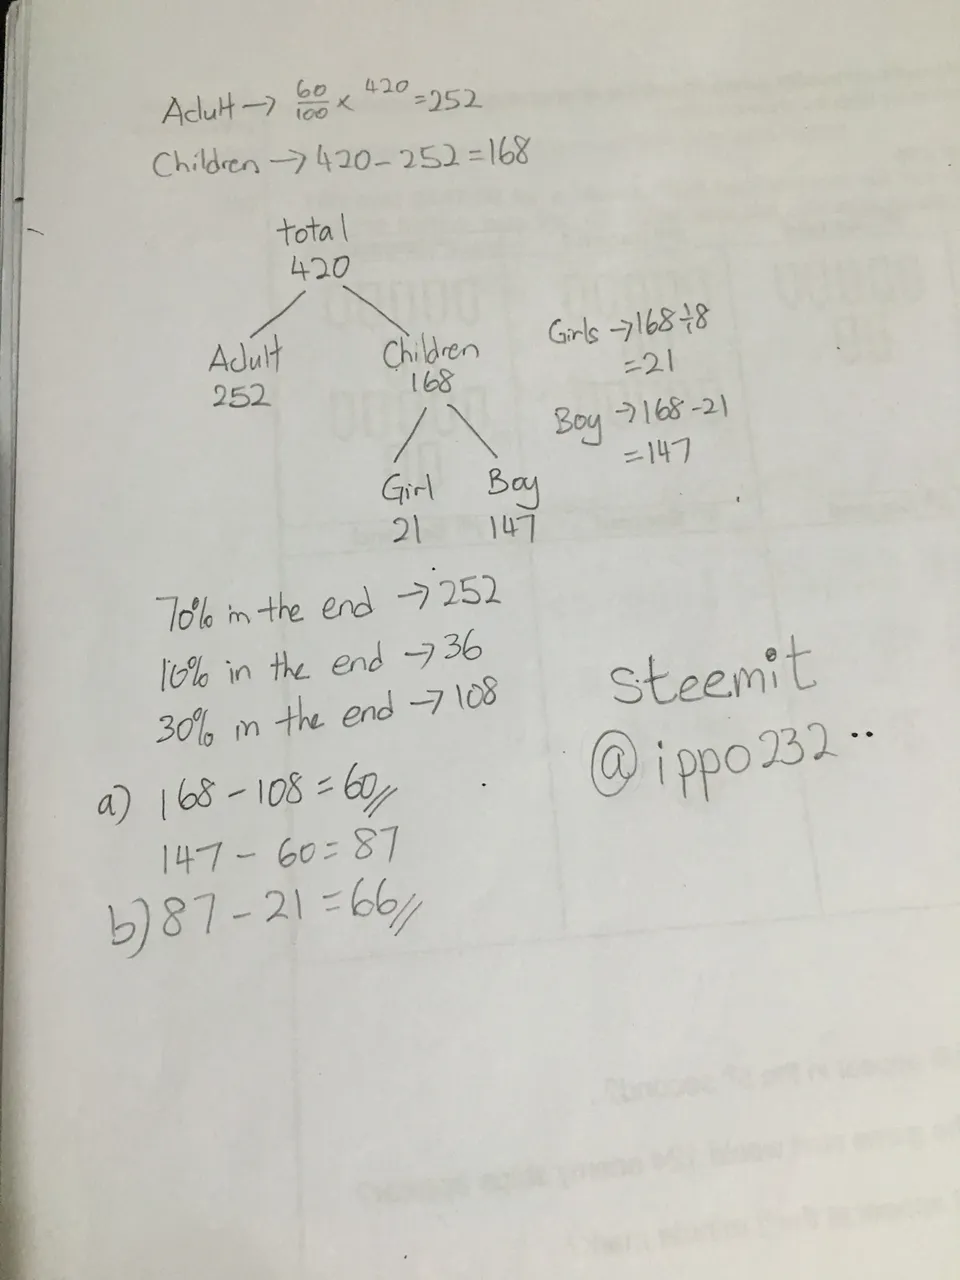 Adult → 60/100 × 420 = 252
Children → 420 - 252 = 168
total
420
Adult
252
Children
168
Girl
21
Boy
147
Girls → 168 ÷ 8
= 21
Boy → 168 - 21
= 147
70% in the end → 252
10% in the end → 36
30% in the end → 108
a) 168 - 108 = 60//
147 - 60 = 87
b) 87 - 21 = 66//
steemit
@ippo232..